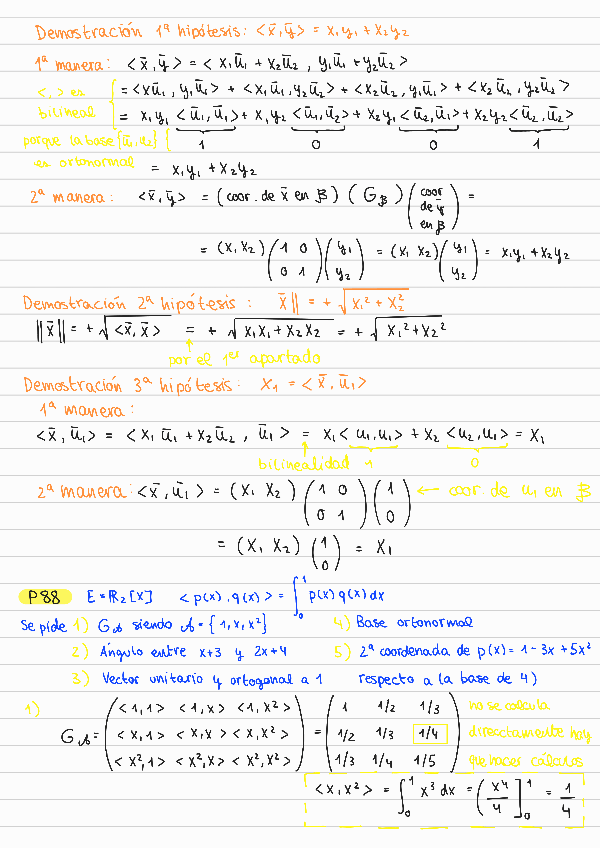 Demostración 1ª hipótesis: <x̄,ȳ> = x₁y₁ + x₂y₂
1ª manera: <x̄,ȳ> = <x₁ū₁ + x₂ū₂, y₁ū₁ + y₂ū₂>
<,> es bilineal { = <xū₁, y₁ū₁> + <x₁ū₁, y₂ū₂> + <x₂ū₂, y₁ū₁> + <x₂ū₂, y₂ū₂>
= x₁y₁ <ū₁,ū₁> + x₁y₂ <ū₁,ū₂> + x₂y₁ <ū₂,ū₁> + x₂y₂ <ū₂,ū₂>
porque la base {ū₁,ū₂} { 1 0 0 1
es ortonormal = x₁y₁ + x₂y₂
2ª manera: <x̄,ȳ> = (coor. de x̄ en B) (G_B) (coor de ȳ en B) =
= (x₁ x₂) (1 0 0 1) (y₁ y₂) = (x₁ x₂) (y₁ y₂) = x₁y₁ + x₂y₂
Demostración 2ª hipótesis: x̄|| = + √x₁² + x₂²
||x̄|| = + √<x̄,x̄> = + √x₁x₁ + x₂x₂ = + √x₁² + x₂²
por el 1er apartado
Demostración 3ª hipótesis: x₁ = <x̄,ū₁>
1ª manera:
<x̄,ū₁> = <x₁ū₁ + x₂ū₂, ū₁> = x₁<u₁,u₁> + x₂ <u₂,u₁> = x₁
bilinealidad 1 0
2ª manera: <x̄,ū₁> = (x₁ x₂) (1 0 0 1) (1 0) ← coor. de u₁ en B
= (x₁ x₂) (1 0) = x₁
P88 E = R₂[x] <p(x),q(x)> = ∫₀¹ p(x) q(x) dx
Se pide 1) G_A siendo A = {1, x, x²} 4) Base ortonormal
2) Ángulo entre x+3 y 2x+4 5) 2ª coordenada de p(x) = 1 - 3x + 5x²
3) Vector unitario y ortogonal a 1 respecto a (la base de 4)
1) (<1,1> <1,x> <1,x²>) (1 1/2 1/3) no se calcula
G_A = (<x,1> <x,x> <x,x²>) = (1/2 1/3 1/4) directamente hay
(<x²,1> <x²,x> <x²,x²>) (1/3 1/4 1/5) que hacer cálculos
<x,x²> = ∫₀¹ x³ dx = (x⁴/4]₀¹ = 1/4